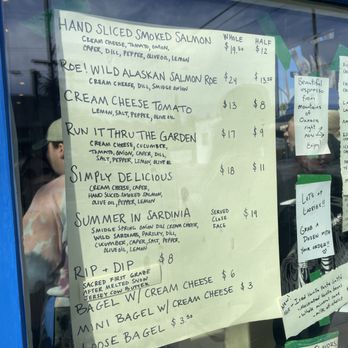 WHOLE HALF
HAND SLICED SMOKED SALMON $19.50 $12
CREAM CHEESE, TOMATO, ONION,
CAPER, DILL, PEPPER, OLIVE OIL, LEMON
ROE! WILD ALASKAN SALMON ROE $24 $13.50
CREAM CHEESE, DILL, SMIDGE ONION
CREAM CHEESE TOMATO $13 $8
LEMON, SALT, PEPPER, OLIVE OIL
RUN IT THRU THE GARDEN $17 $9
CREAM CHEESE, CUCUMBER,
TOMATO, ONION, CAPER, DILL
SALT, PEPPER, LEMON, OLIVE OIL
SIMPLY DELICIOUS $18 $11
CREAM CHEESE, CAPER,
HAND SLICED SMOKED SALMON,
OLIVE OIL, PEPPER, LEMON
SUMMER IN SARDINIA SERVED CLOSE FACE $19
SMIDGE SPRING ONION DILL CREAM CHEESE,
WILD SARDINES, PARSLEY, DILL,
CUCUMBER, CAPER, SALT, PEPPER,
OLIVE OIL, LEMON
RIP + DIP $8
SACRED FIRST GRADE
AFTER MELTED SNOW
JERSEY COW BUTTER
BAGEL W/ CREAM CHEESE $6
MINI BAGEL W/ CREAM CHEESE $3
LOOSE BAGEL $3.50
Beautiful
espresso
from
mountains
of
Oaxaca
right
now
Enjoy!
LOTS OF
GRAB A
DOZEN WITH
YOUR ORDER!